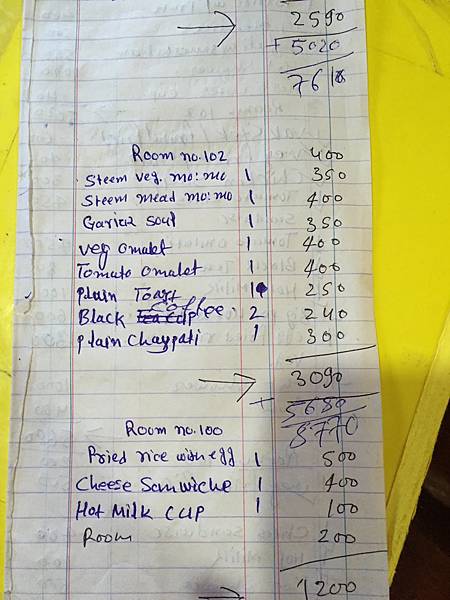 → 2590
+ 5020
7610
Room no.102 400
Steem veg. mo:mo 1 350
Steem mead mo:mo 1 400
Garica soul 1 350
veg omalet 1 400
Tomato omalet 1 400
Plain Toast 1 250
Black Coffee 2 240
Plain Chappati 1 300
→ 3090
+ 5680
8770
Room no.100
Fried rice with egg 1 500
Cheese Samwiche 1 400
Hot Milk cup 1 100
Room 200
→ 1200